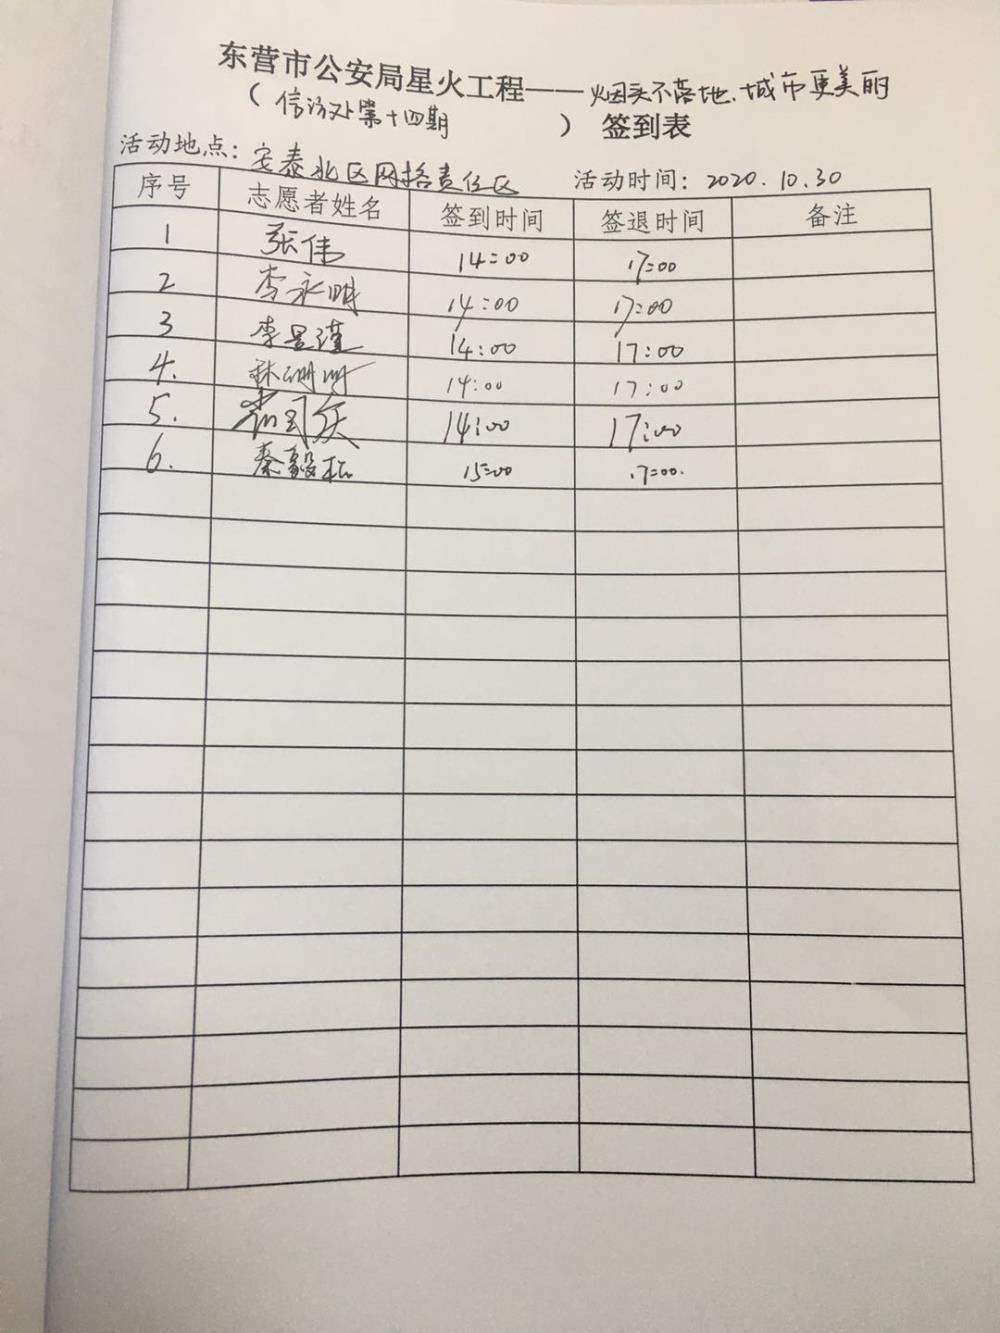 东营市公安局星火工程——烟头不落地、城市更美丽
（信访处第十四期） 签到表
活动地点：安泰北区网格责任区 活动时间：2020.10.30
序号 志愿者姓名 签到时间 签退时间 备注
1 张伟 14:00 17:00
2 李永明 14:00 17:00
3 李昱瑾 14:00 17:00
4. 林珊珊 14:00 17:00
5. 14:00 17:00
6. 秦毅松 15:00 17:00.